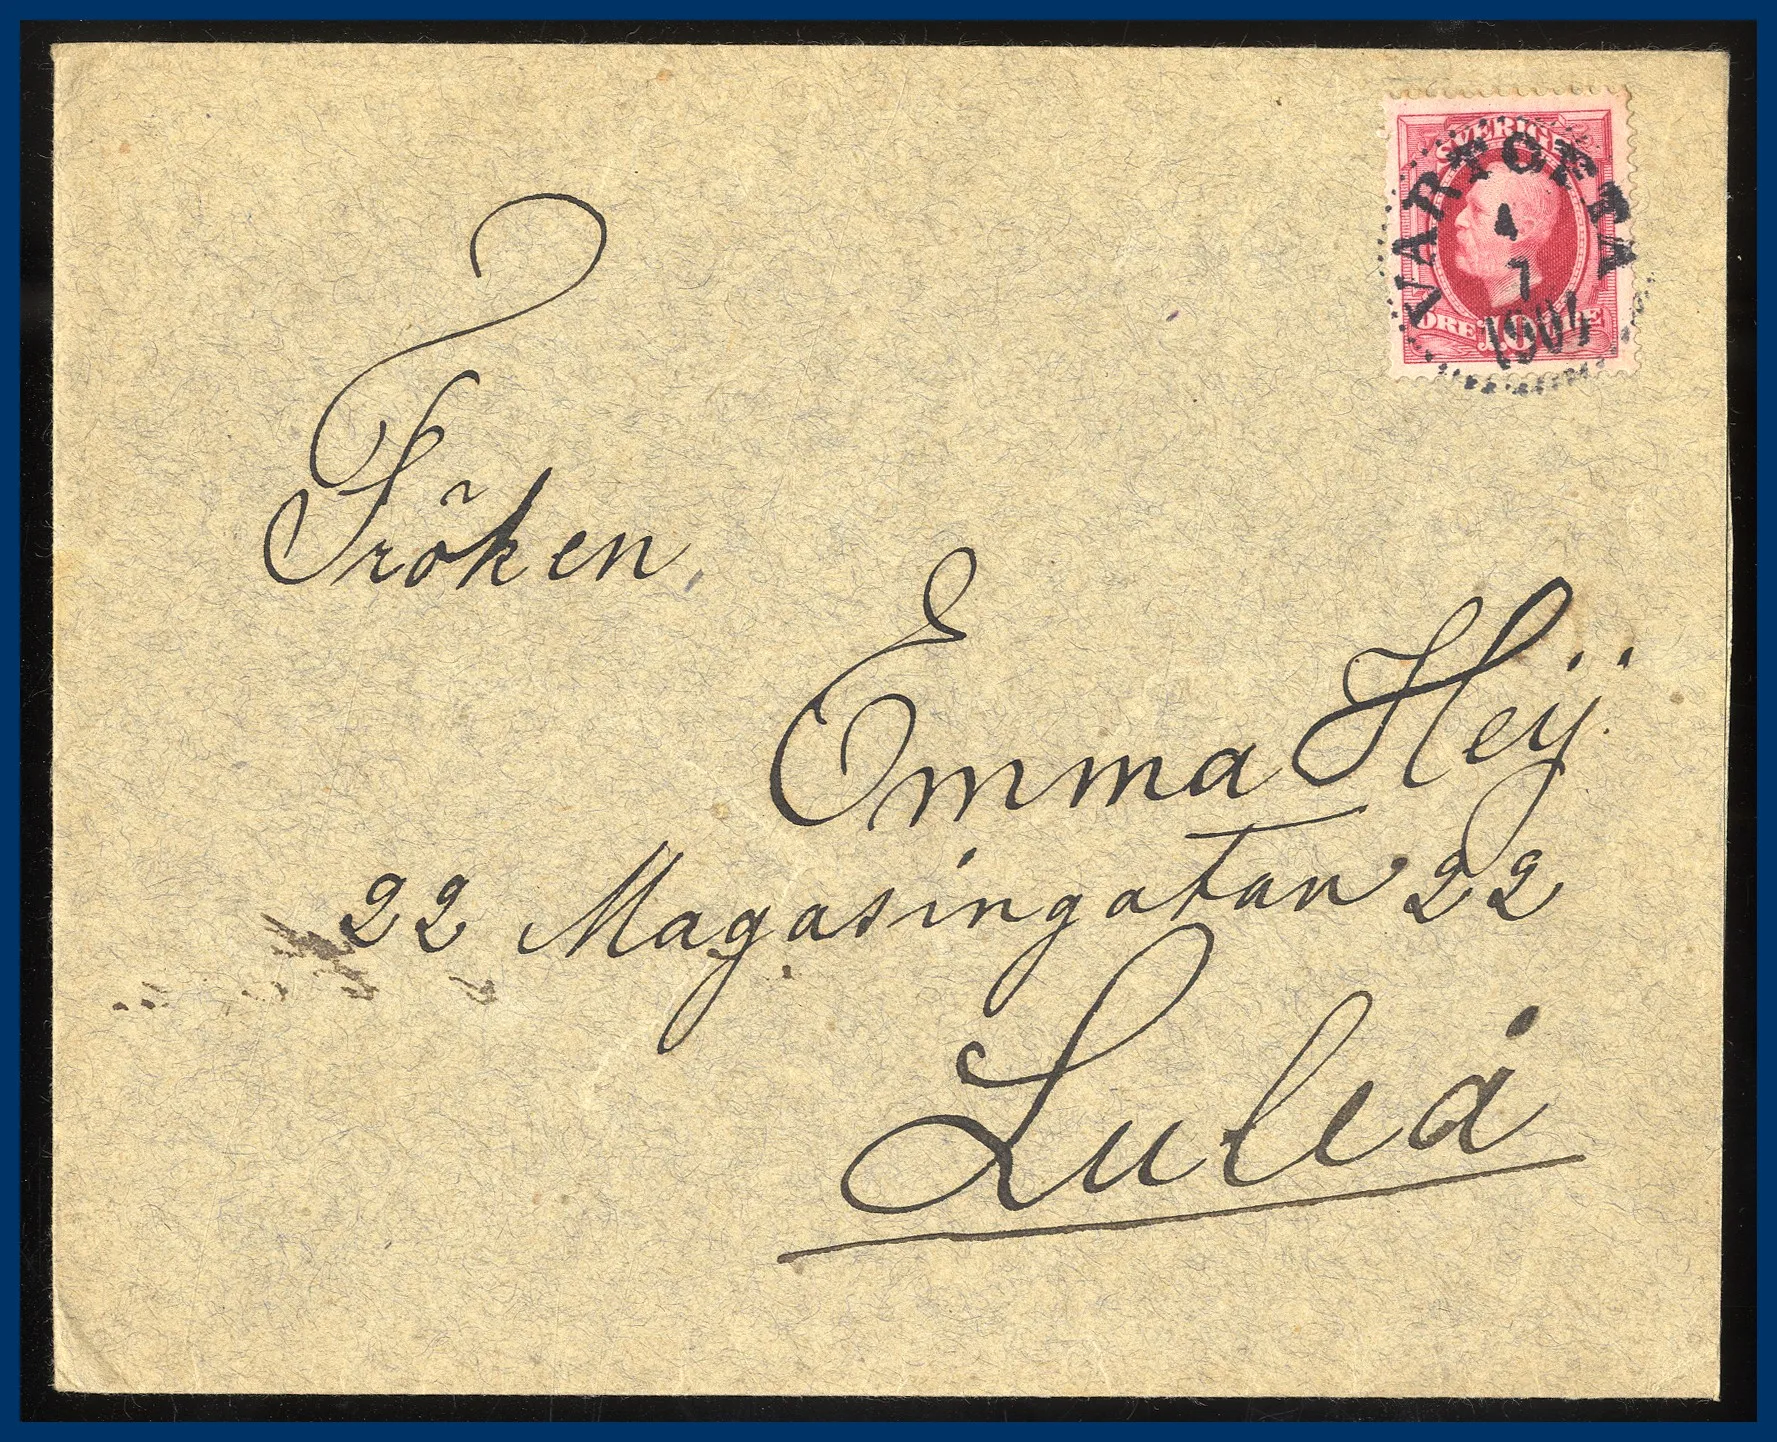 SVERIGE
VARTOFTA
4
7
1904
ÖRE 10 ÖRE
Fröken
Emma Heij
22 Magasingatan 22
Luleå